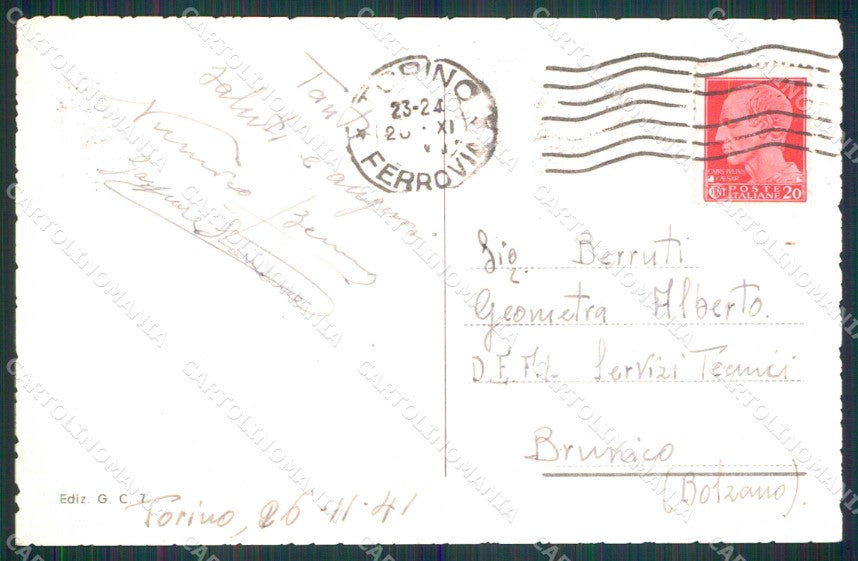 Tanti
saluti e auguri.
TORINO
23-24
XI
FERROVIA
CAIVS IVLIVS
CAESAR
CENT POSTE 20
ITALIANE
Sig. Berruti
Geometra Alberto.
Servizi Tecnici
Brunico
(Bolzano).
Ediz. G. C. T.
Torino, 26-11-41
CARTOLINOMANIA